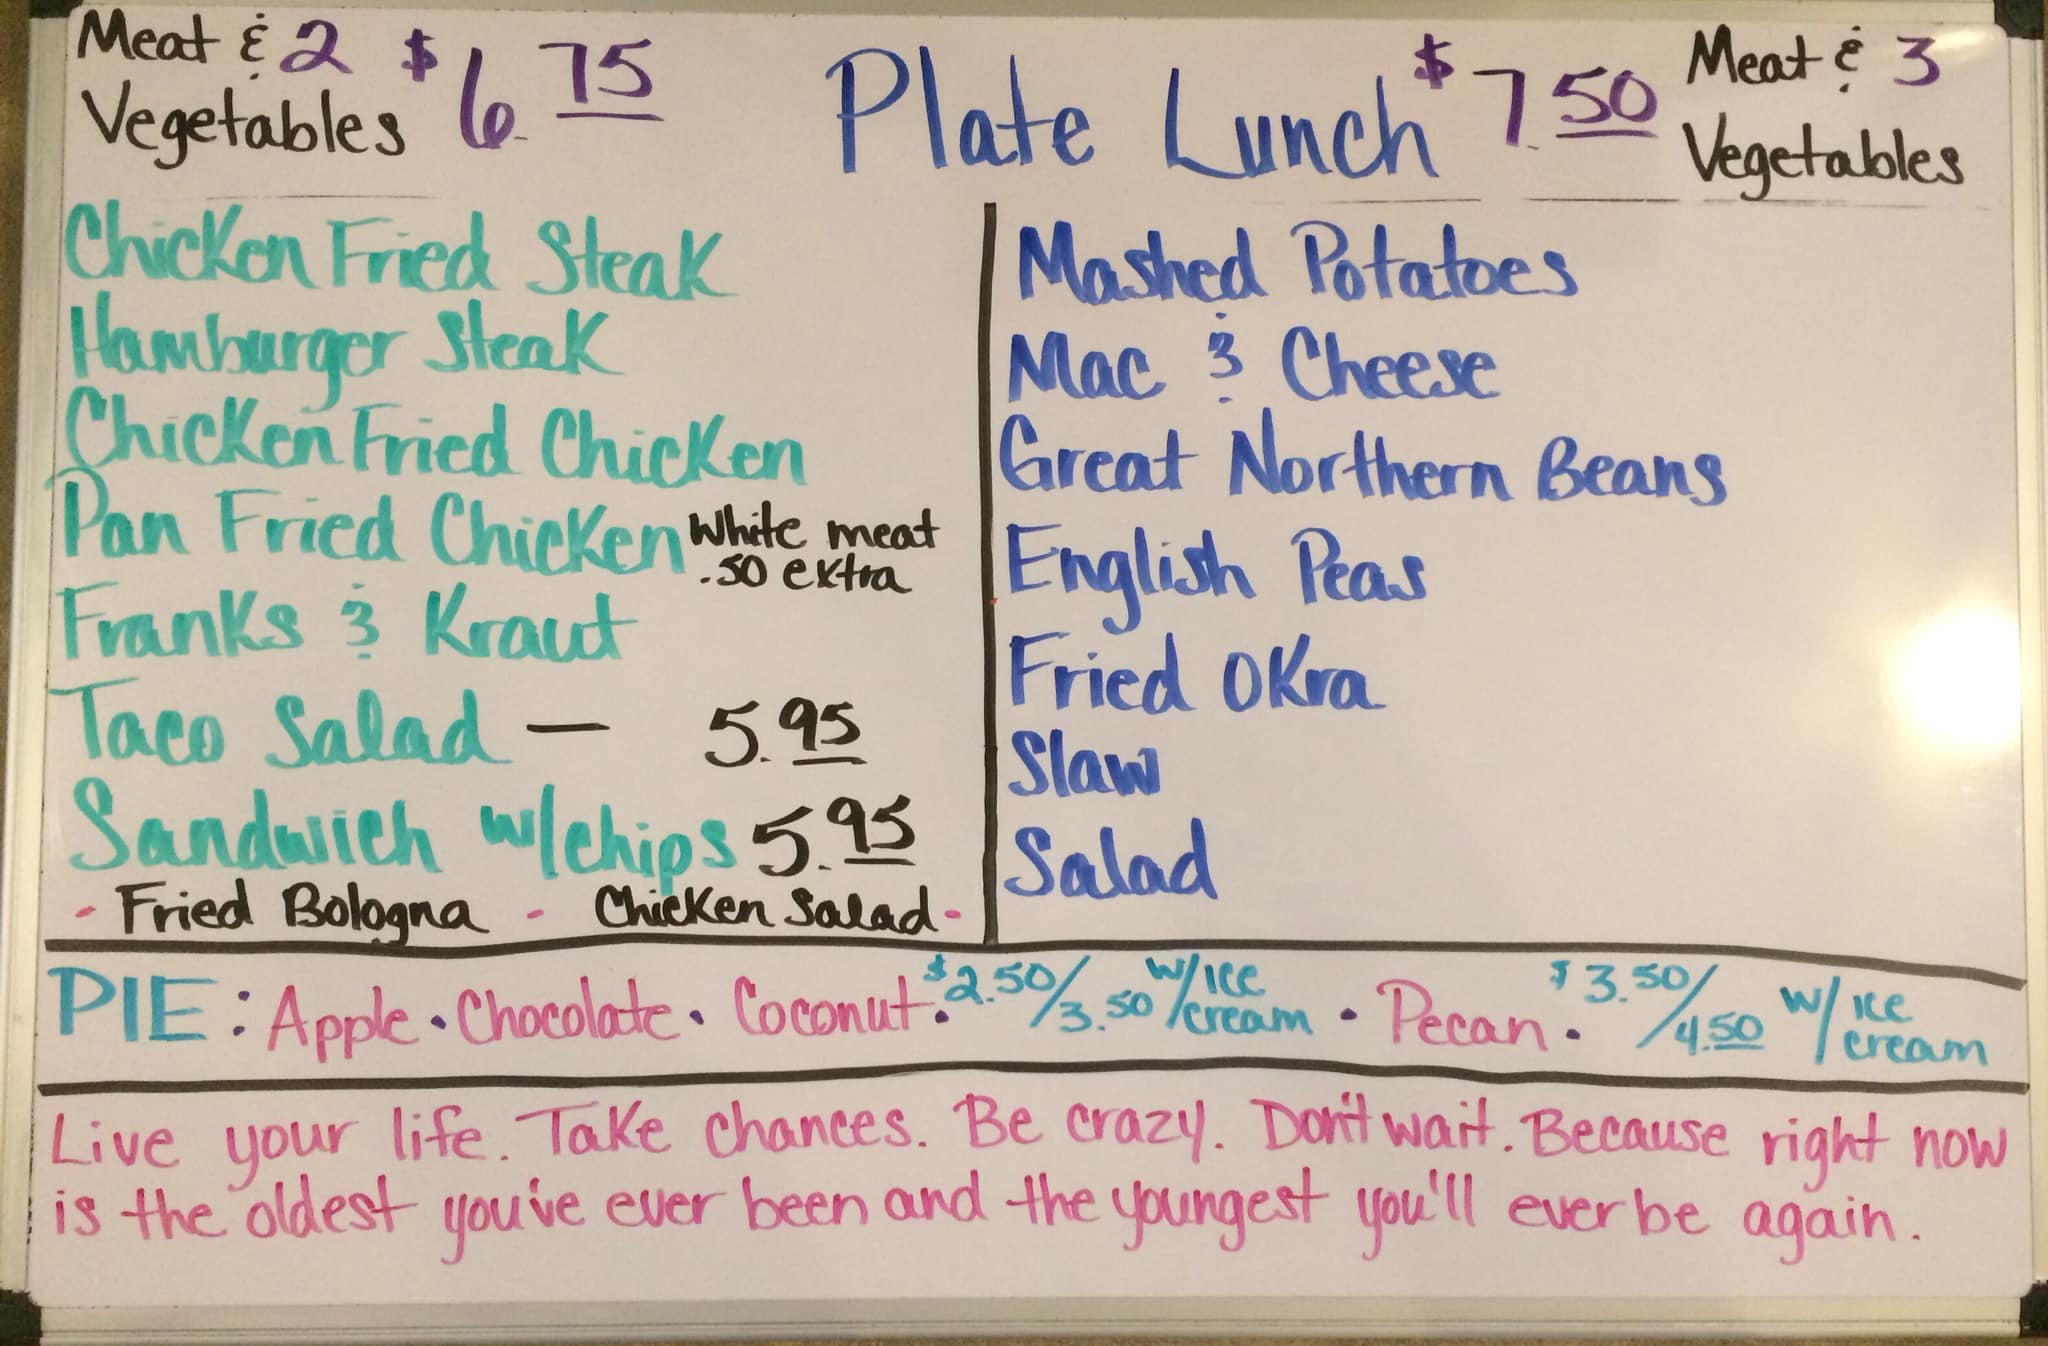 Meat & 2 $6.75 Plate Lunch $7.50 Meat & 3
Vegetables Vegetables
Chicken Fried Steak
Hamburger Steak
Chicken Fried Chicken
Pan Fried Chicken White meat
.50 extra
Franks & Kraut
Taco Salad — 5.95
Sandwich w/chips 5.95
- Fried Bologna - Chicken Salad -
Mashed Potatoes
Mac & Cheese
Great Northern Beans
English Peas
Fried Okra
Slaw
Salad
PIE: Apple • Chocolate • Coconut • $2.50/3.50 w/ice cream • Pecan • $3.50/4.50 w/ice cream
Live your life. Take chances. Be crazy. Don't wait. Because right now
is the oldest you've ever been and the youngest you'll ever be again.